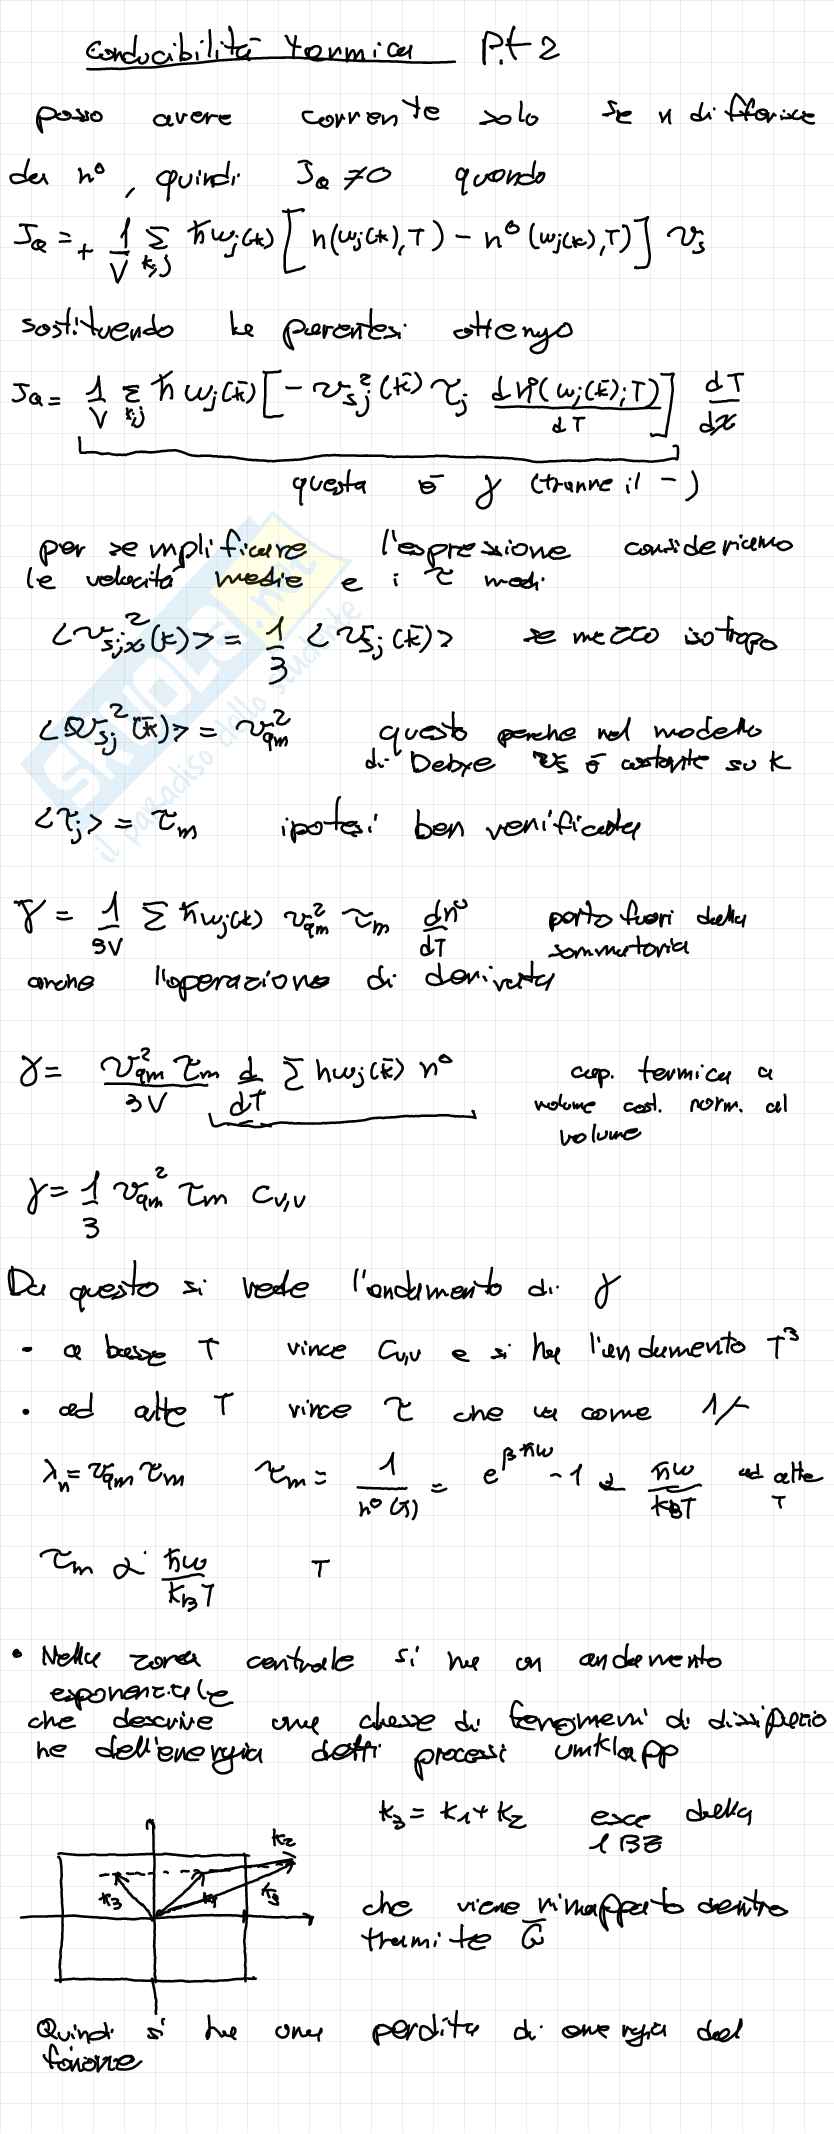 Conducibilità termica Pt 2
posso avere corrente solo se n differisce
da n⁰, quindi J_Q ≠ 0 quando
J_Q = + 1/V Σ_{k,j} ħω_j(k) [ n(ω_j(k),T) - n⁰(ω_j(k),T) ] v_s
sostituendo la parentesi ottengo
J_Q = 1/V Σ_{k,j} ħω_j(k̄) [ - v_{sj}²(k̄) τ_j dn⁰(ω_j(k̄);T)/dT ] dT/dx
questa è γ (tranne il -)
per semplificare l'espressione consideriamo
le velocità medie e i τ medi
<v²_{sjx}(k)> = 1/3 <v_{sj}(k̄)> se mezzo isotropo
<v_{sj}²(k̄)> = v²_{qm} questo perche nel modello
di Debye v_s è costante su k
<τ_j> = τ_m ipotesi ben verificata
γ = 1/3V Σ ħω_j(k) v²_{qm} τ_m dn⁰/dT porto fuori dalla
sommatoria
anche l'operazione di derivata
γ = v²_{qm} τ_m/3V d/dT Σ ħω_j(k̄) n⁰ cap. termica a
volume cost. norm. al
volume
γ = 1/3 v_{qm}² τ_m C_{V,V}
Da questo si vede l'andamento di γ
- a basse T vince C_{V,V} e si ha l'andamento T³
• ad alte T vince τ che va come 1/T
λ_n = v_{qm} τ_m τ_m = 1/n⁰(T) = e^{βħω} - 1 ∝ ħω/k_BT ad alte
T
τ_m ∝ ħω/k_BT T
• Nella zona centrale si ha un andamento
esponenziale
che descrive una classe di fenomeni di dissipazio
ne dell'energia detti processi umklapp
k_3 = k_1 + k_2 esce dalla
1 BZ
k_2
k_3 k_1 k_3
che viene rimappato dentro
tramite Ḡ
Quindi si ha una perdita di energia del
fonone
SKUOLA.net
il paradiso dello studente